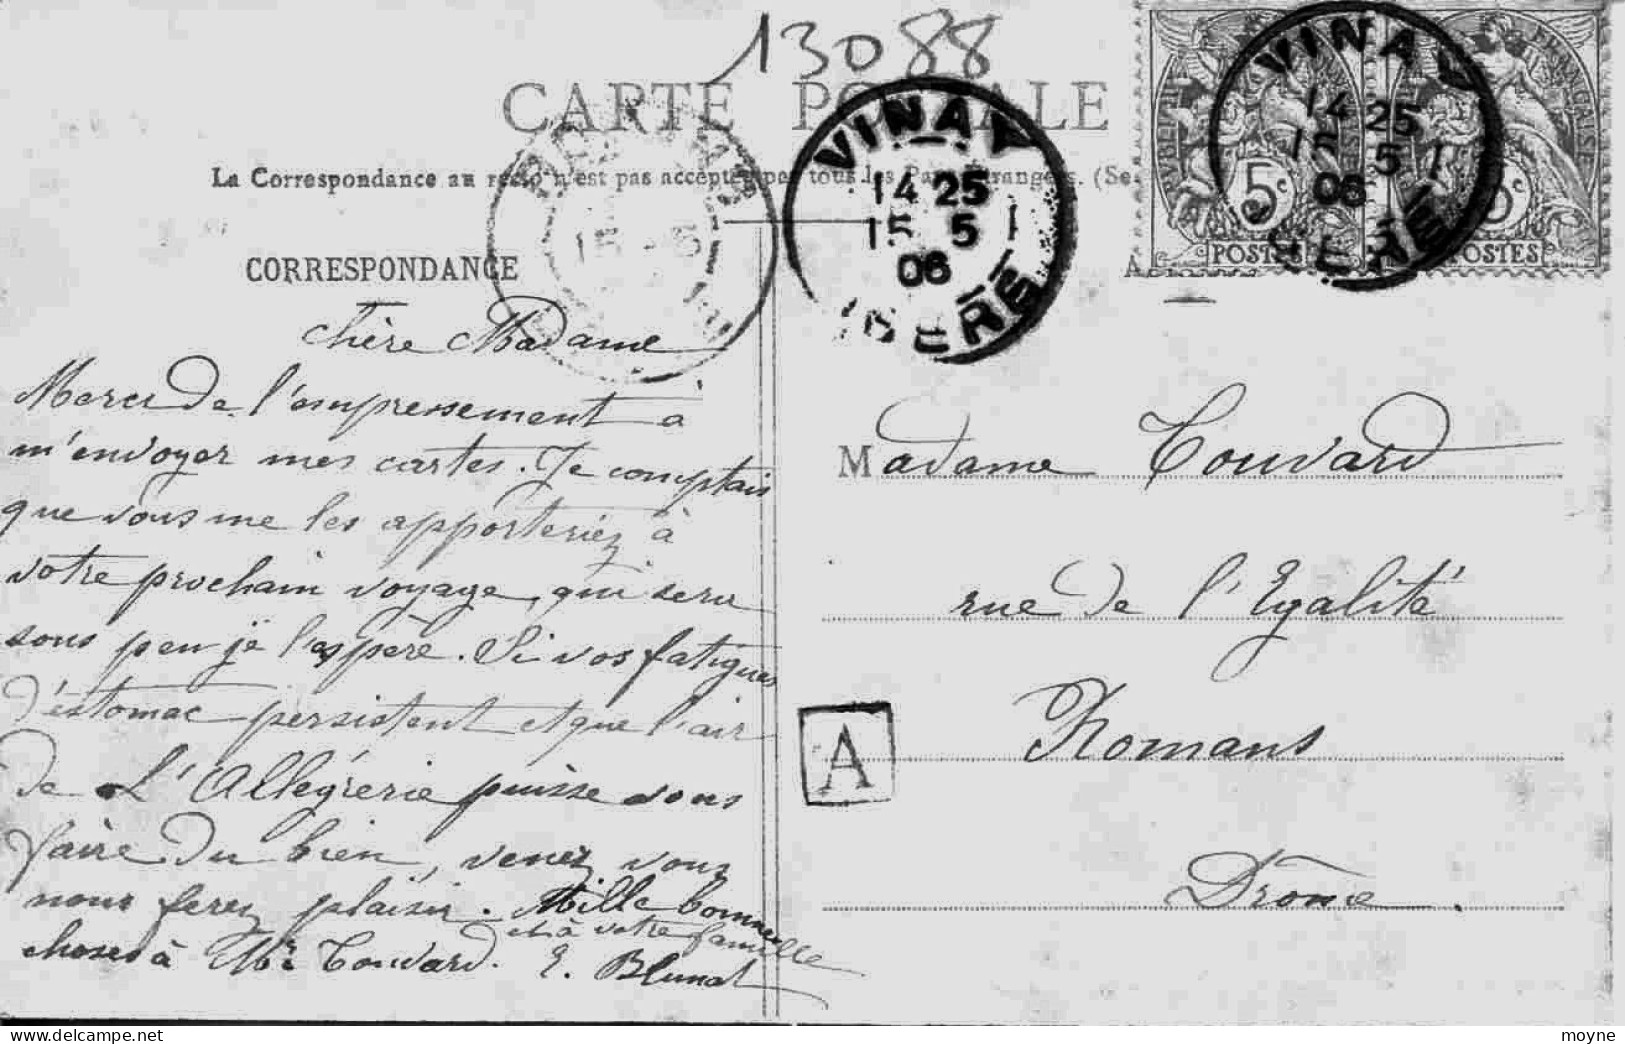 13088
CARTE POSTALE
La Correspondance au recto n'est pas acceptée par tous les Pays étrangers. (Se
CORRESPONDANCE
VINAY
14 25
15 5
06
ISERE
VINAY
14 25
15 5
06
ISERE
5c
POSTES
RÉPUBLIQUE FRANÇAISE
5c
POSTES
15 5
Chère Madame
Merci de l'empressement à
m'envoyer mes cartes. Je comptais
que vous me les apporteriez à
votre prochain voyage, qui sera
sous peu je l'espère. Si vos fatigues
d'estomac persistent et que l'air
de L'Allégrerie puisse vous
faire du bien, venez, vous
nous ferez plaisir. Mille bonnes
choses à Mr Touvard.
et à votre famille
E. Blunat
Madame Touvard
rue de l'Egalité
Romans
Drôme.
A
moyne